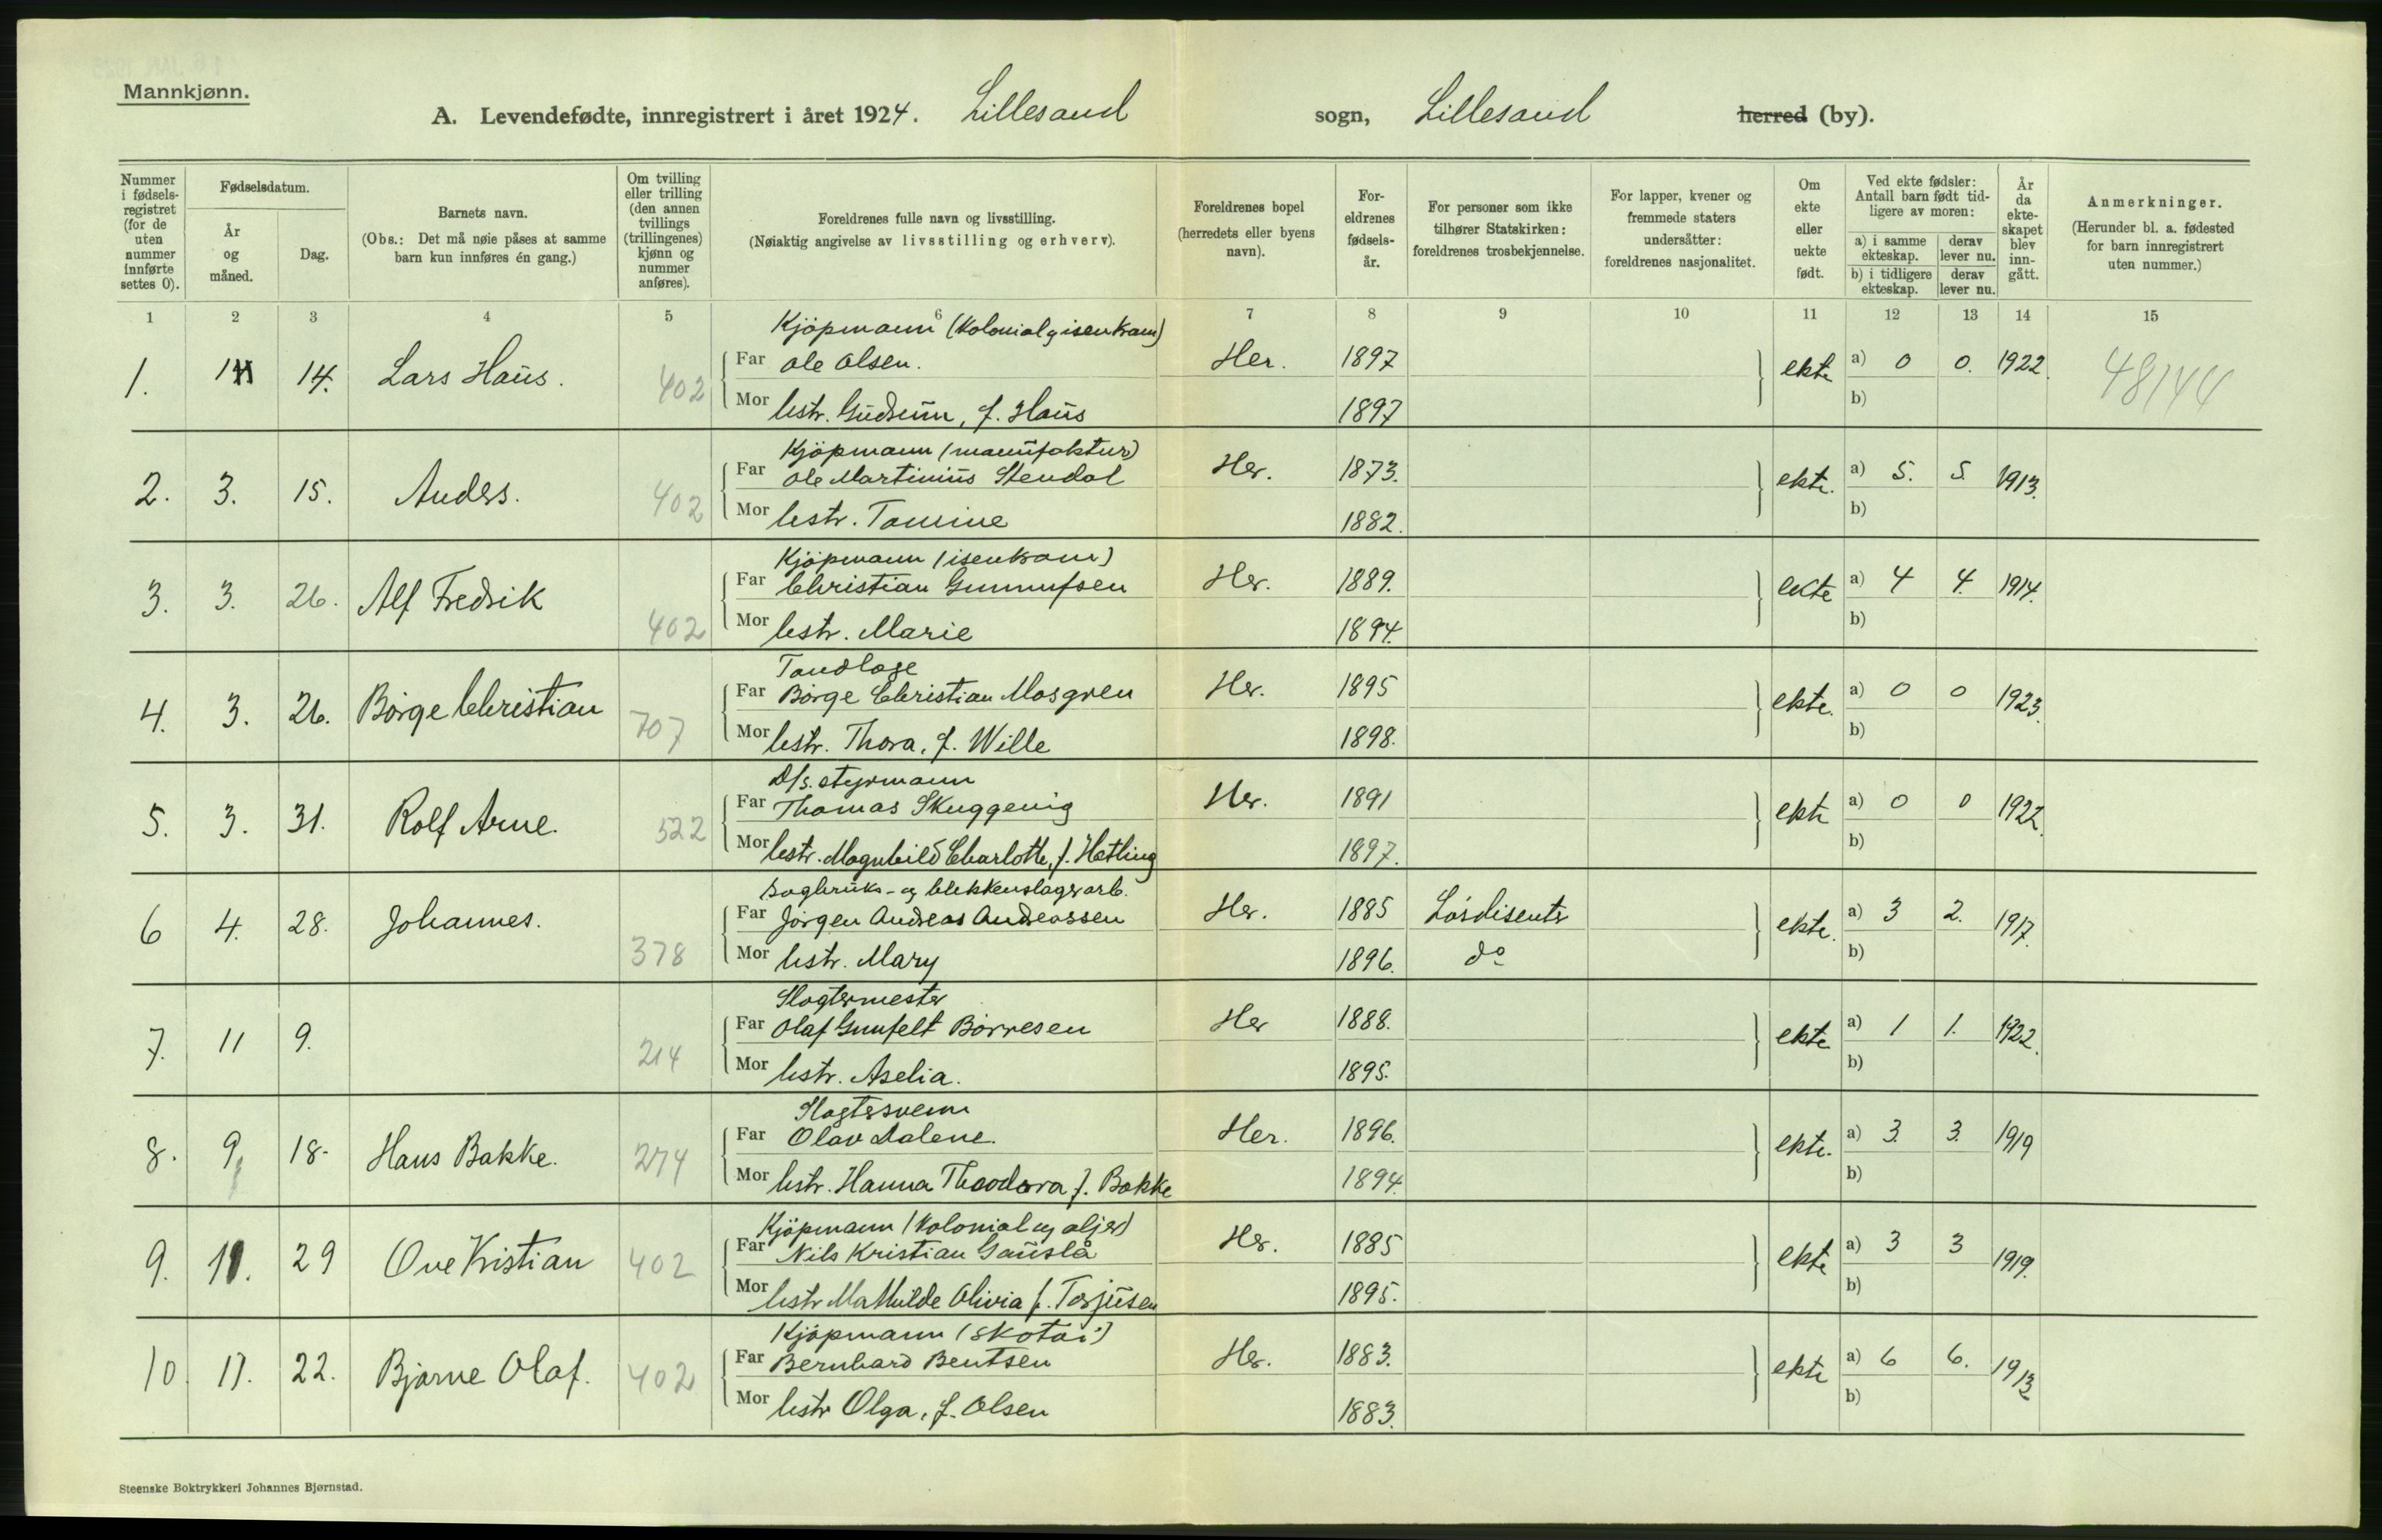 Mannkjønn.
A. Levendefødte, innregistrert i året 1924. Lillesand sogn, Lillesand herred (by).
Nummer i fødselsregistret (for de uten nummer innførte settes 0).
Fødselsdatum.
År og måned.
Dag.
Barnets navn.
(Obs.: Det må nøie påses at samme barn kun innføres én gang.)
Om tvilling eller trilling (den annen tvillings (trillingenes) kjønn og nummer anføres).
Foreldrenes fulle navn og livsstilling.
(Nøiaktig angivelse av livsstilling og erhverv).
Foreldrenes bopel (herredets eller byens navn).
Foreldrenes fødselsår.
For personer som ikke tilhører Statskirken: foreldrenes trosbekjennelse.
For lapper, kvener og fremmede staters undersåtter: foreldrenes nasjonalitet.
Om ekte eller uekte født.
Ved ekte fødsler: Antall barn født tidligere av moren:
a) i samme ekteskap. derav lever nu.
b) i tidligere ekteskap. derav lever nu.
År da ekteskapet blev inngått.
Anmerkninger.
(Herunder bl. a. fødested for barn innregistrert uten nummer.)
1 2 3 4 5 6 7 8 9 10 11 12 13 14 15
Kjöpmann (Kolonial og isenkram)
1. 14. Lars Haus. 402 Far Ole Olsen. Her. 1897 ekte a) 0 0. 1922. 48144
Mor hstr. Gudrun, f. Haus 1897 b)
Kjöpmann (manufaktur)
2. 3. 15. Anders. 402 Far Ole Martinius Stendal Her. 1873. ekte. a) 5. 5. 1913.
Mor hstr. Tomine 1882. b)
Kjöpmann (isenkram)
3. 3. 26. Alf Fredrik 402 Far Christian Gunnufsen Her. 1889. ekte a) 4 4. 1914.
Mor hstr. Marie 1894. b)
Tandlæge
4. 3. 26. Börge Christian 707 Far Börge Christian Mosgren Her. 1895 ekte. a) 0 0 1923.
Mor hstr. Thora, f. Wille 1898. b)
D/s. styrmann
5. 3. 31. Rolf Arne. 522 Far Thomas Skuggevig Her. 1891 ekte a) 0 0 1922.
Mor hstr. Magnhild Charlotte, f. Hetling 1897. b)
Sagbruks- og blekkenslagerarb.
6 4. 28. Johannes. 378 Far Jörgen Andreas Andreassen Her. 1885 ekte. a) 3 2. 1917.
Mor hstr. Mary 1896. do b)
Slagtermester
7. 11 9. 214 Far Olaf Gunfelt Börresen Her 1888. ekte a) 1 1. 1922.
Mor hstr. Aselia. 1895. b)
Slagtersvenn
8. 9 18. Hans Bakke. 274 Far Olav Dalene. Her. 1896. ekte. a) 3. 3. 1919
Mor hstr. Hanna Theodora f. Bakke 1894. b)
Kjöpmann (Kolonial og oljer)
9. 11. 29 Ove Kristian 402 Far Nils Kristian Gauslå Her. 1885 ekte a) 3 3 1919.
Mor hstr Mathilde Olivia f. Torjusen 1895. b)
Kjöpmann (skotöi)
10. 11. 22. Bjarne Olaf. 402 Far Bernhard Bentsen Her. 1883. ekte a) 6 6. 1913
Mor hstr Olga, f. Olsen 1883. b)
Steenske Boktrykkeri Johannes Bjørnstad.